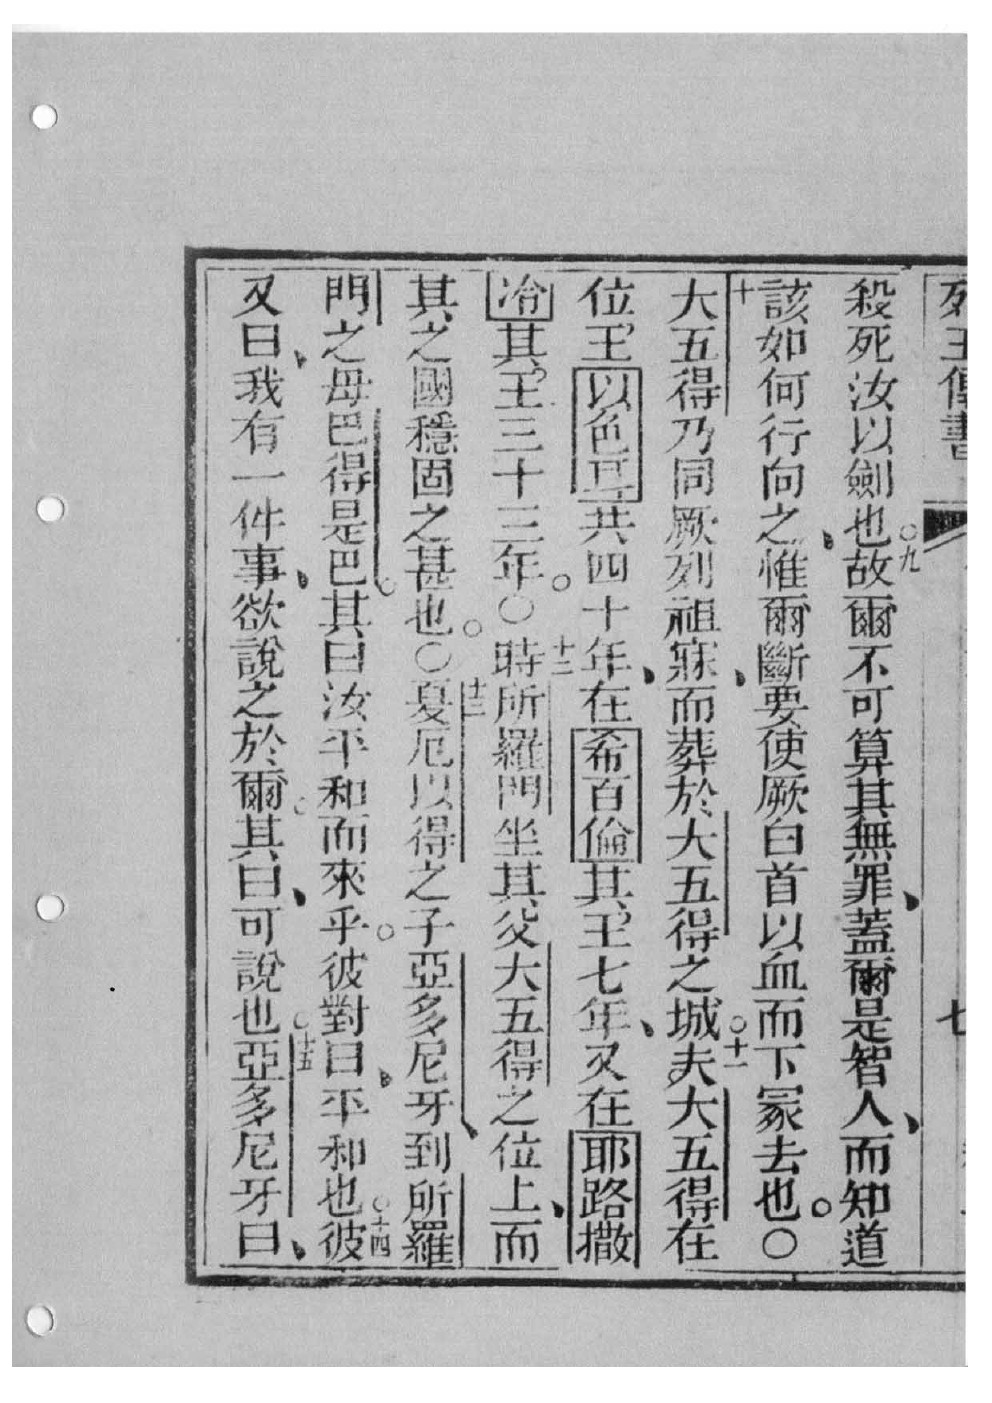 列王傳書 七
殺死汝以劍也。九故爾不可算其無罪、蓋爾是智人、而知道
該如何行向之、惟爾斷要使厥白首以血而下冢去也。〇
十大五得乃同厥列祖寐、而葬於大五得之城。十一夫大五得在
位王以色耳共四十年、在希百倫其王七年、又在耶路撒
冷其王三十三年。〇十二時所羅門坐其父大五得之位上、而
其之國穩固之甚也。〇十三夏厄以得之子亞多尼牙、到所羅
門之母巴得是巴。其曰汝平和而來乎。彼對曰、平和也。十四彼
又曰、我有一件事、欲說之於爾。其曰、可說也。十五亞多尼牙曰、